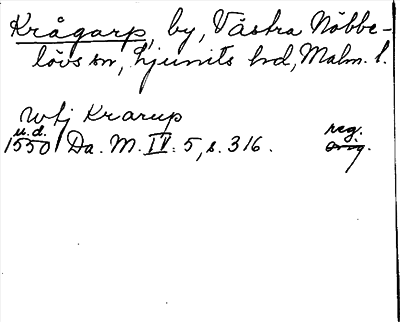 Krågarp, by, Västra Nöbbe-
lövs sn, Ljunits hd, Malm. l.
wtj Krarup
u.d.
1550 Da. M. IV: 5, s. 316. reg.
orig.